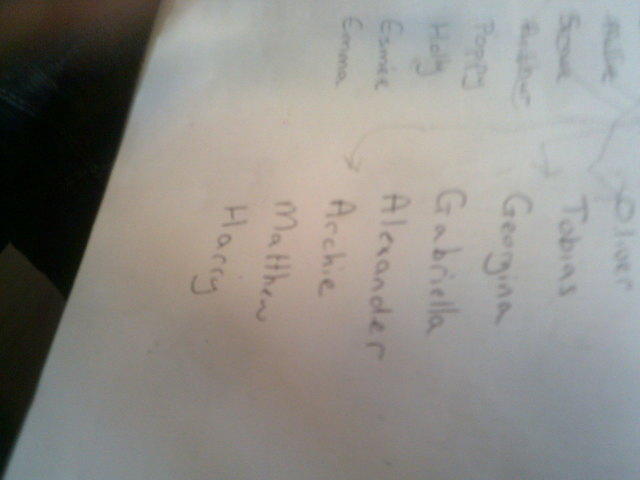 Poppy
Holly
Esmée
Emma
Oliver
Tobias
Georgina
Gabriella
Alexander
Archie
Matthew
Harry